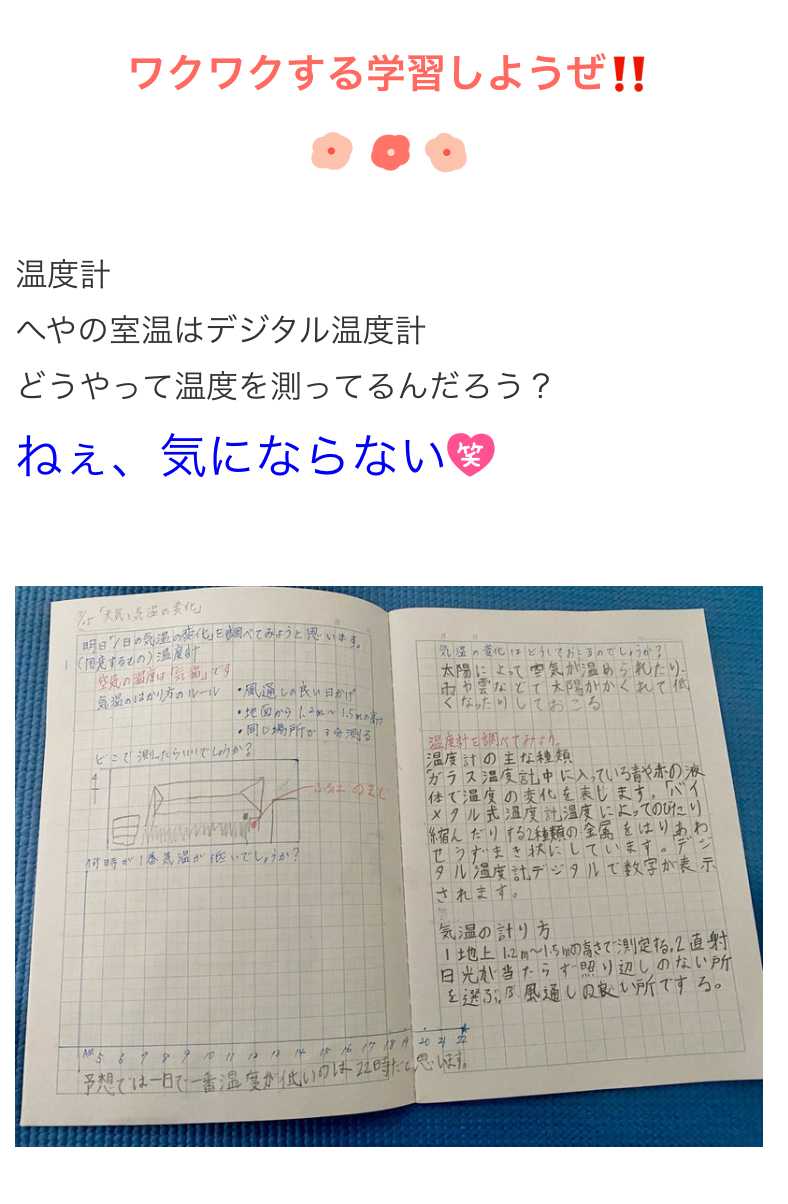 ワクワクする学習しようぜ‼️
温度計
へやの室温はデジタル温度計
どうやって温度を測ってるんだろう？
ねぇ、気にならない笑
「天気と気温の変化」
明日「1日の気温の変化」を調べてみようと思います。
(用意するもの) 温度計
空気の温度は「気温」です
気温のはかり方のルール
・風通しの良い日かげ
・地面から1.2m〜1.5mの
・同じ場所が 測る
どこで測ったらいいでしょうか?
何時が1番気温が低いでしょうか?
5 6 7 8 9 10 11 12 13 14 15 16 17 18 19 20 21 22
予想では一日で一番温度が低いのは22時だと思います。
気温の変化はどうしておこるのでしょうか?
太陽によって空気が温められたり、
雨や雲などで太陽がかくれて低
くなったりしておこる
温度計を調べてみよう
温度計の主な種類
「ガラス温度計」中に入っている青や赤の液
体で温度の変化を表します。「バイ
メタル式温度計」温度によってのびたり
縮んだりする2種類の金属をはりあわ
せうずまき状にしています。「デジ
タル温度計」デジタルで数字が表示
されます。
気温の計り方
1地上1.2m〜1.5mの高さで測定する。2直射
日光が当たらず照り返しのない所
を選ぶ。3風通しの良い所でする。